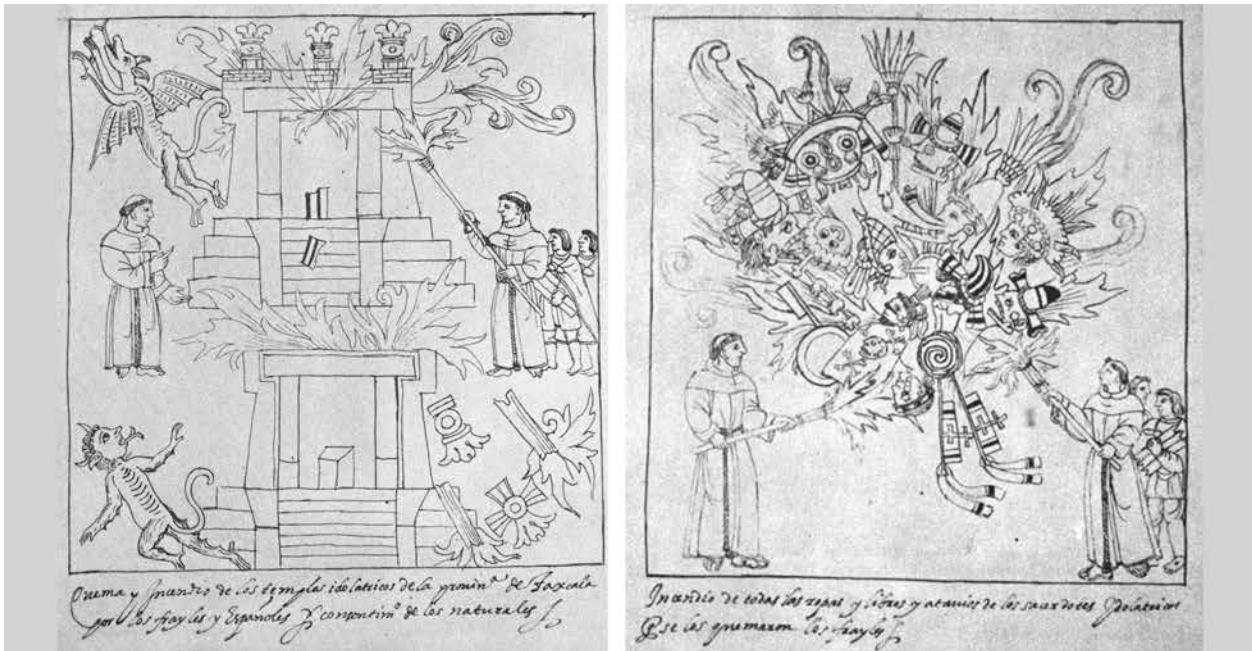 Quema y Incendio de los templos idolatricos de la provinª de Taxcala
por los frayles y Españoles Y consentimº de los naturales
Incendio de todas las ropas y libros y atavios de los sacerdotes Ydolatricos
Q se los quemaron los frayles